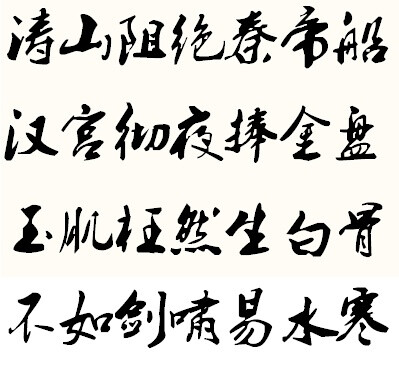 涛山阻绝秦帝船
汉宫彻夜捧金盘
玉肌枉然生白骨
不如剑啸易水寒